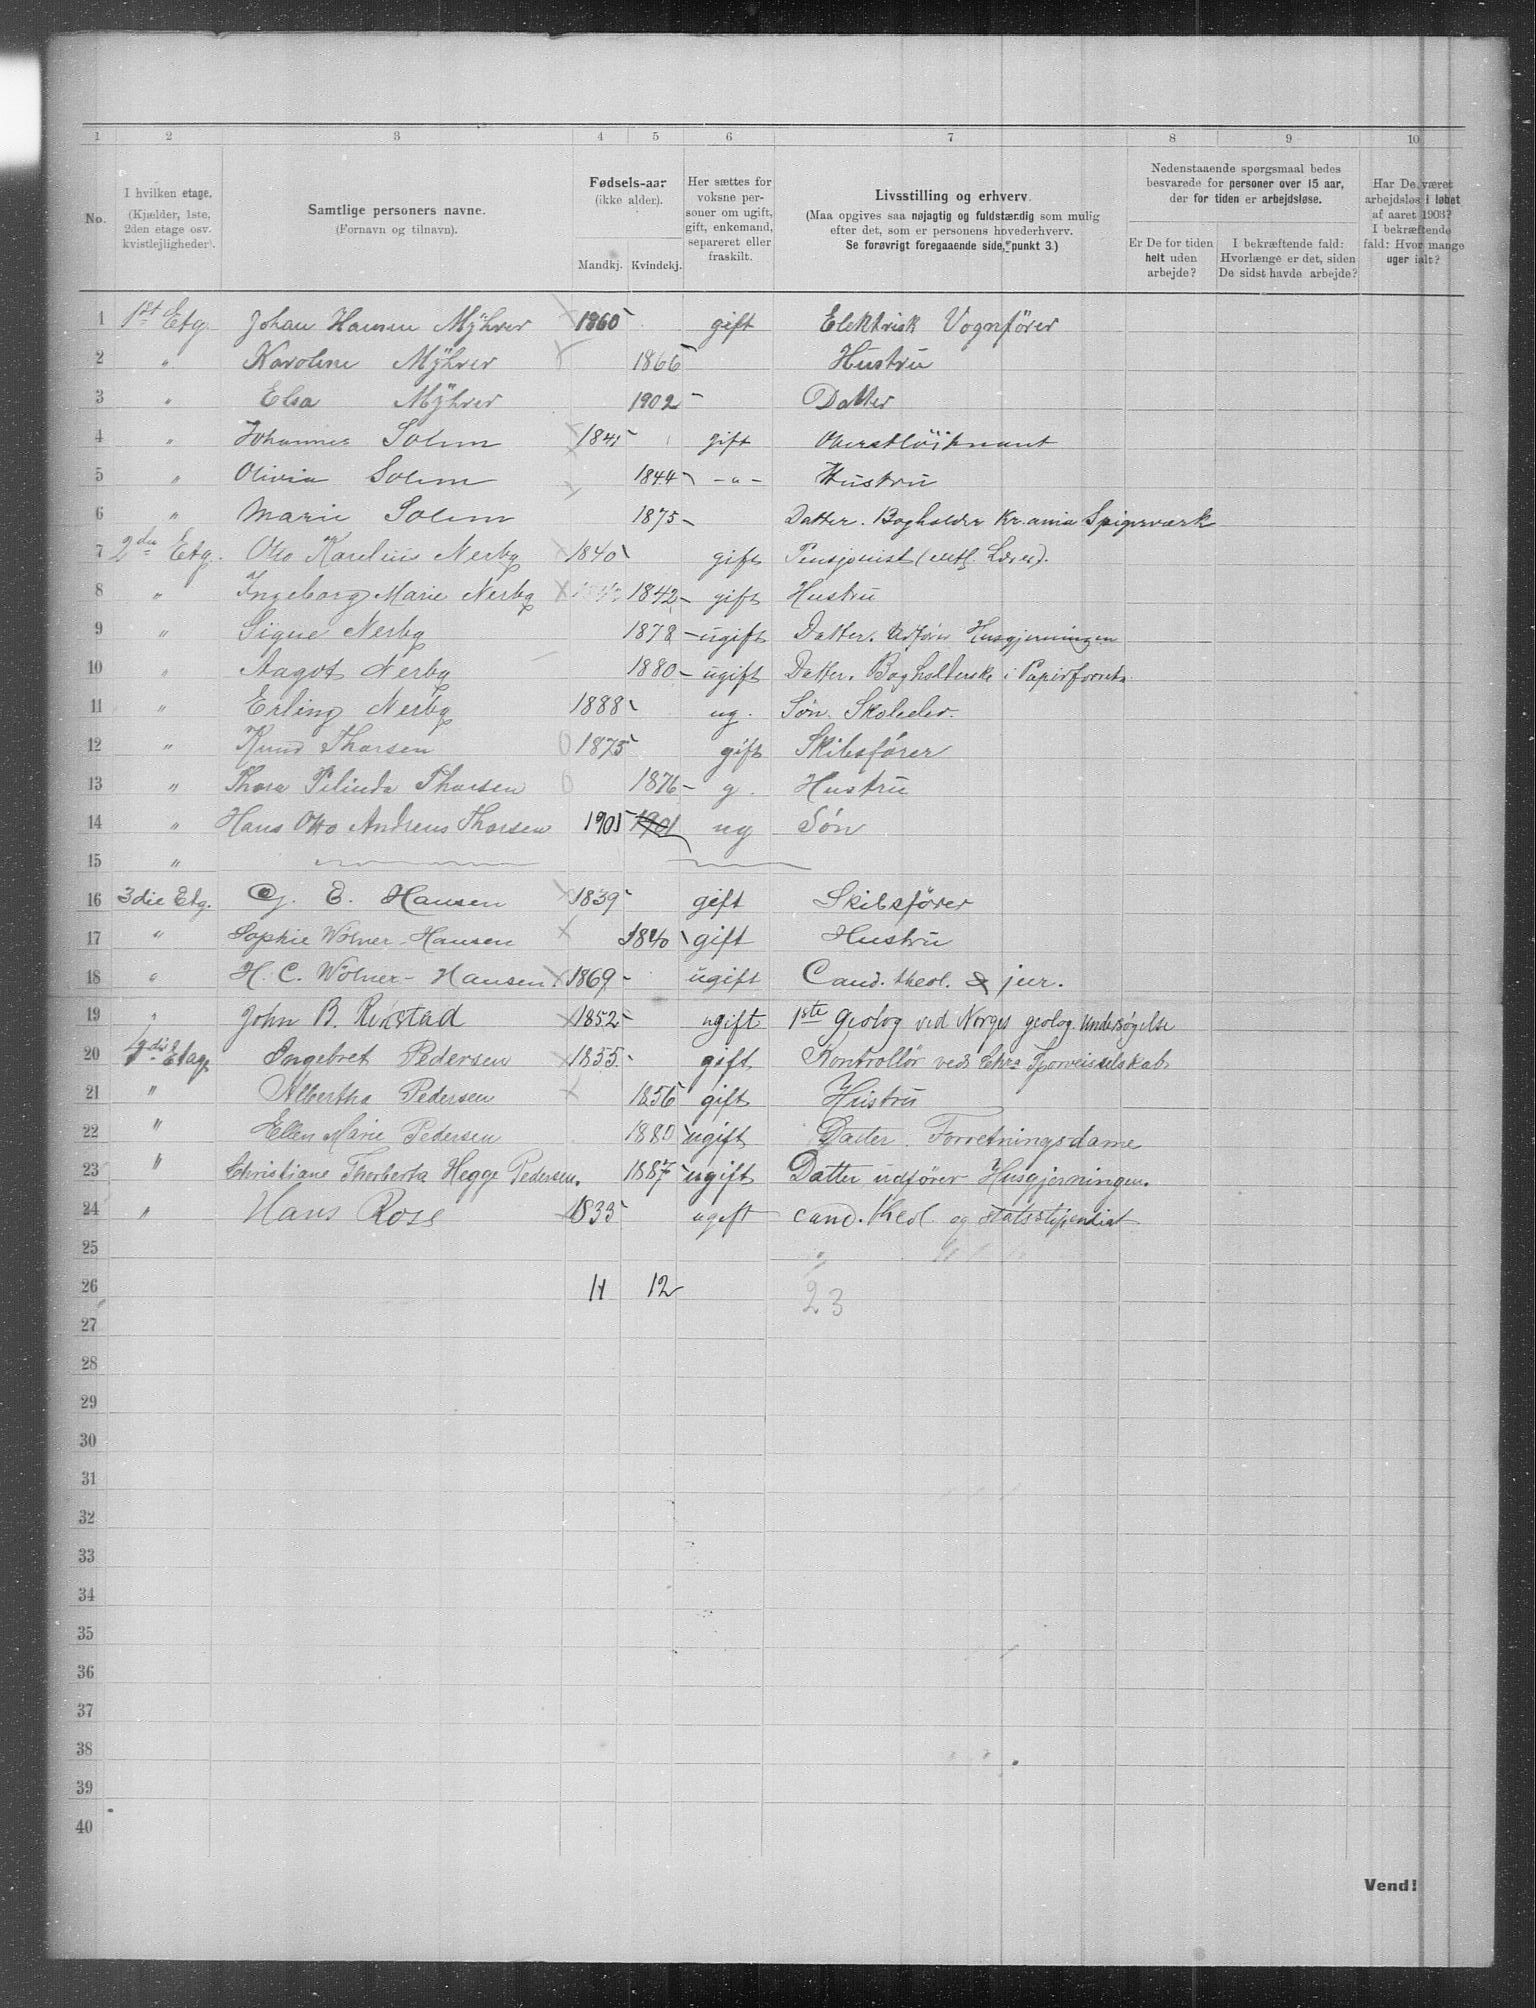 1 2 3 4 5 6 7 8 9 10
No.
I hvilken etage.
(Kjælder, 1ste,
2den etage osv.
kvistlejligheder).
Samtlige personers navne.
(Fornavn og tilnavn).
Fødsels-aar
(ikke alder).
Mandkj. Kvindekj.
Her sættes for
voksne per-
soner om ugift,
gift, enkemand,
separeret eller
fraskilt.
Livsstilling og erhverv.
(Maa opgives saa nøjagtig og fuldstændig som mulig
efter det, som er personens hovederhverv.
Se forøvrigt foregaaende side, punkt 3.)
Nedenstaaende spørgsmaal bedes
besvarede for personer over 15 aar,
der for tiden er arbejdsløse.
Er De for tiden
helt uden
arbejde?
I bekræftende fald:
Hvorlænge er det, siden
De sidst havde arbejde?
Har De været
arbejdsløs i løbet
af aaret 1903?
I bekræftende
fald: Hvor mange
uger ialt?
1 1st Etg. Johan Hansen Mÿhrer 1860 gift Elektrisk Vognfører
2 " Karoline Mÿhrer 1866 Hustru
3 " Elsa Mÿhrer 1902 - Datter
4 " Johannes Solem 1841 gift Oberstløitnant
5 " Olivia Solem 1844 - " - Hustru
6 " Marie Solem 1875 - Datter. Bogholder Kr.ania Spigerværk
7 2den Etg. Otto Karelius Nerby 1840 gift Pensjonist Lærer).
8 " Ingeborg Marie Nerby 1842 - gift Hustru
9 " Signe Nerby 1878 - ugift Datter. Udfører Husgjerningen
10 " Aagot Nerby 1880 - ugift Datter. Bogholderske i Papirforretn.
11 " Erling Nerby 1888 ug. Søn. Skoleelev.
12 " Knud Thorsen 1875 gift Skibsfører
13 " Thora Pelinda Thorsen 1876 - g. Hustru
14 " Hans Otto Andreas Thorsen 1901 1901 ug Søn
15 "
16 3die Etg. C. E. Hansen 1839 gift Skibsfører
17 " Sophie Wølner-Hansen 1840 gift Hustru
18 " H. C. Wølner-Hansen 1869 - ugift Cand. theol. & jur.
19 " John B. Rekstad 1852 - ugift 1ste Geolog ved Norges geolog. Undersøgelse
20 4die Etage Ingebret Pedersen 1855 - gift Kontrollør ved Chra Sporveisselskab
21 " Albertha Pedersen 1856 gift Hustru
22 " Ellen Marie Pedersen 1880 ugift Datter Forretningsdame
23 " Christiane Thorberta Hegge Pedersen. 1887 ugift Datter udfører Husgjerningen.
24 " Hans Ross 1833 ugift cand. theol. og statsstipendiat
25
26 11 12 23
27
28
29
30
31
32
33
34
35
36
37
38
39
40
Vend!